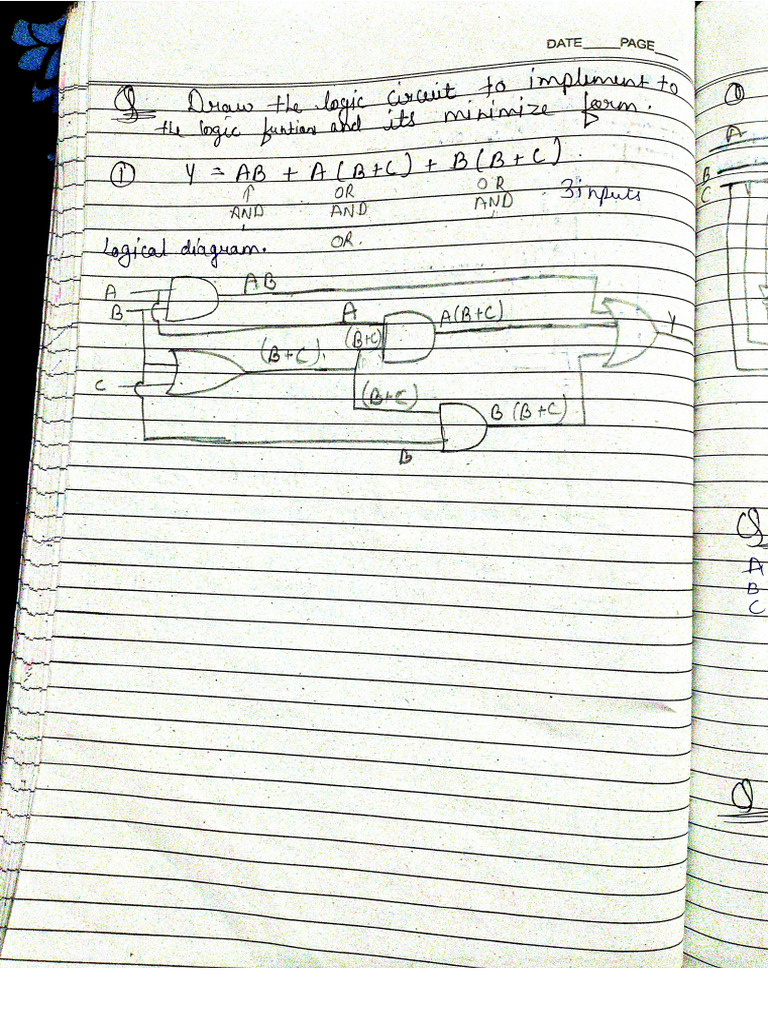 DATE PAGE
Q Draw the logic circuit to implement to
the logic funtions and its minimize form.
① Y = AB + A (B+C) + B (B+C).
↑ OR OR
AND AND AND 3 inputs
OR.
Logical diagram.
A AB
B A A(B+C) Y
(B+C). (B+C)
C (B+C) B (B+C)
B
①
A
B
C
Q
A
B
C
Q